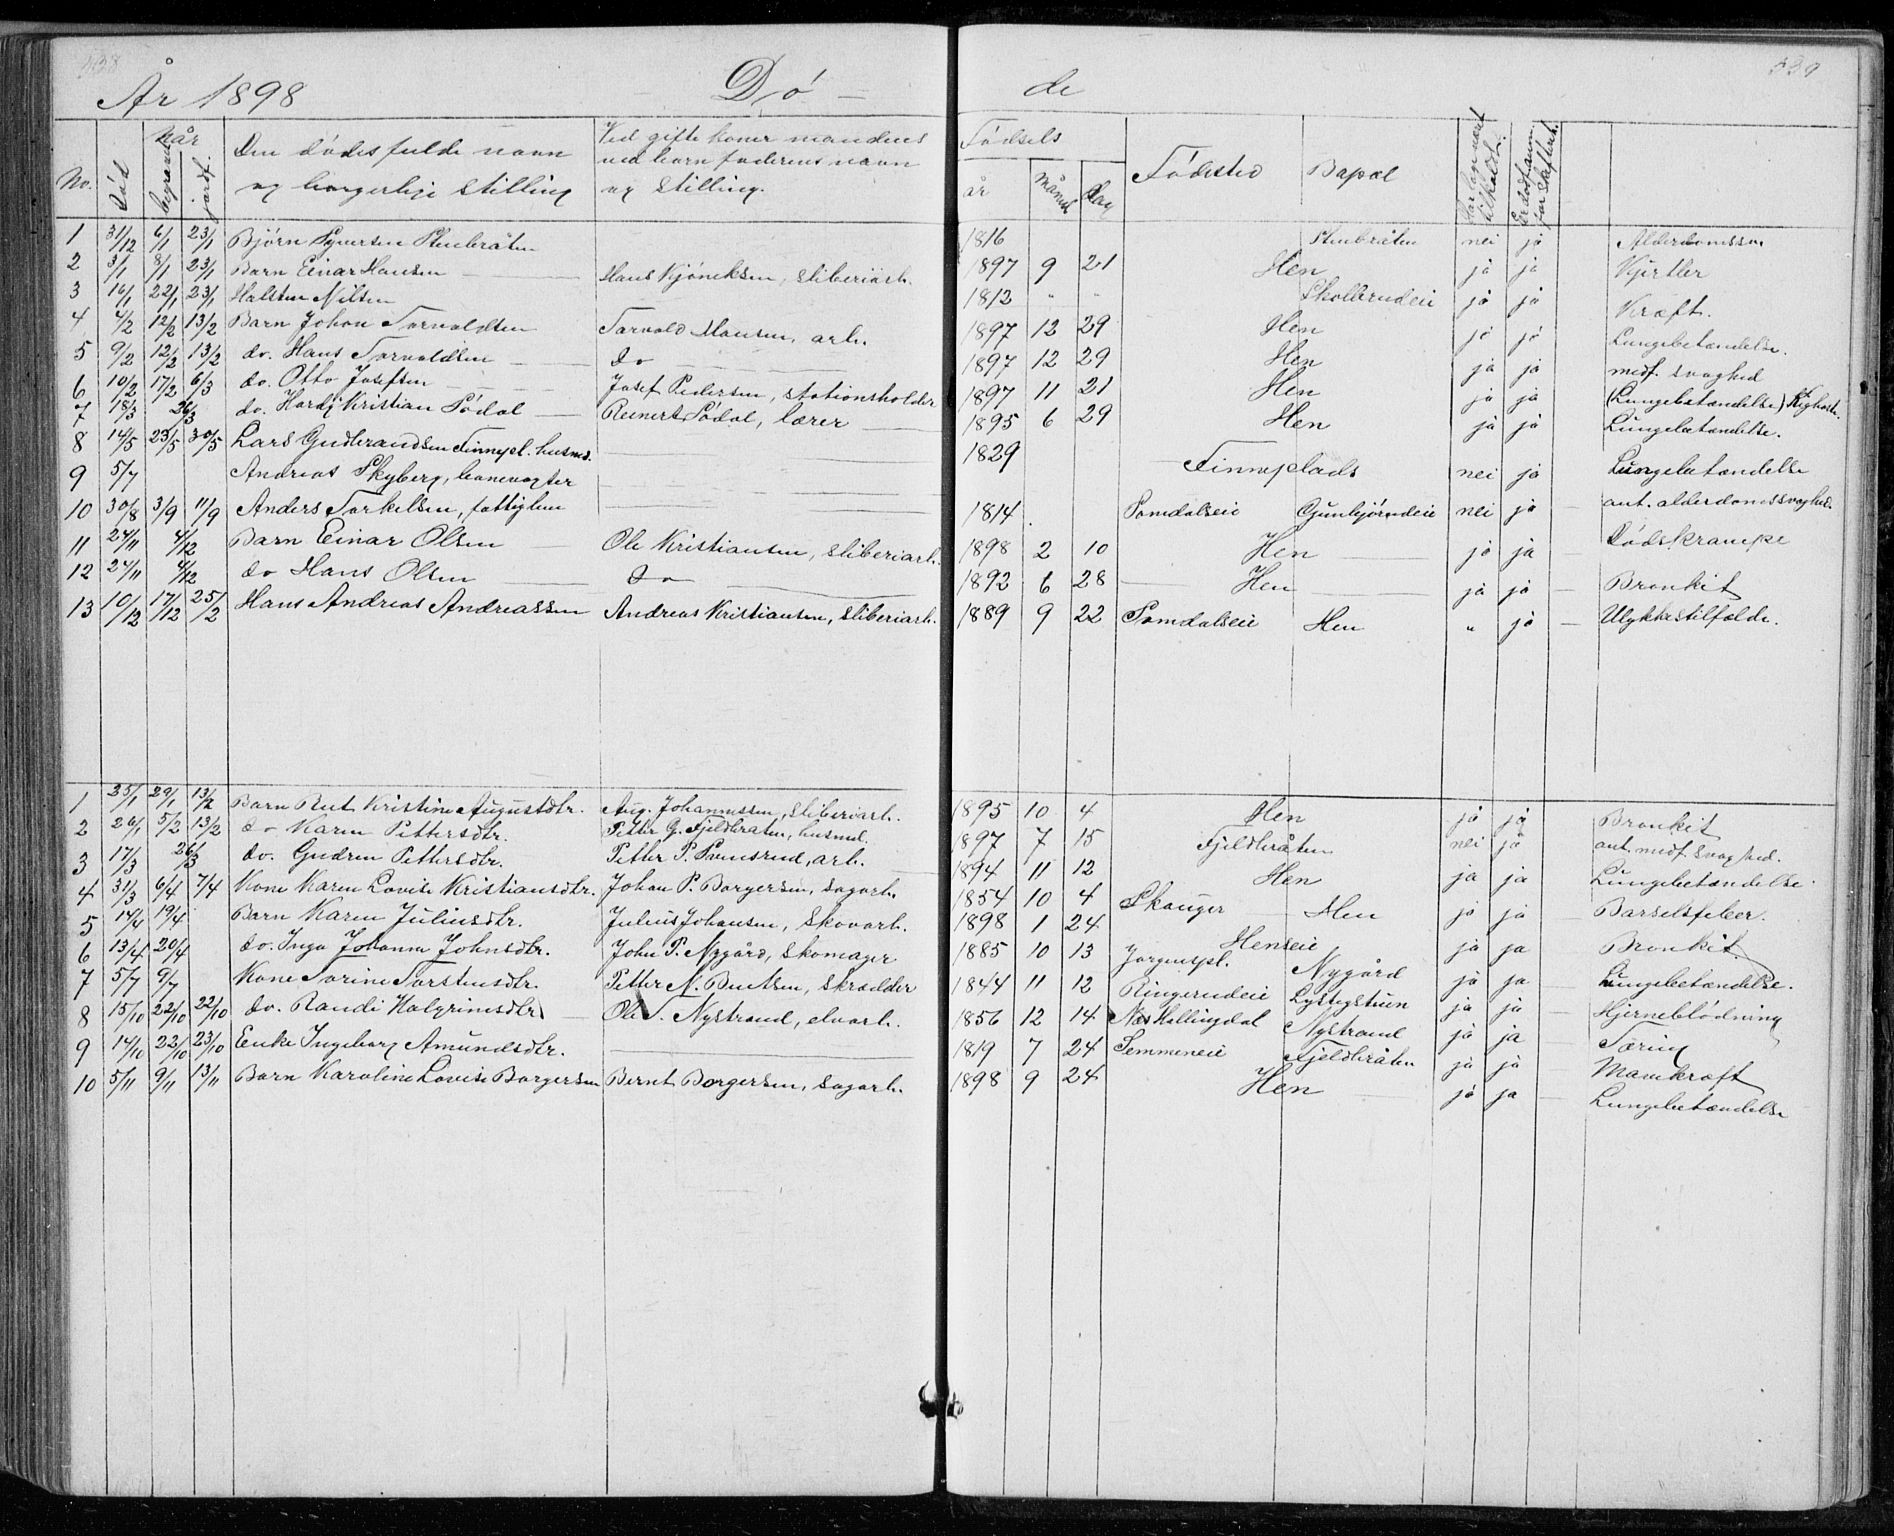 538
539
År 1898
Dø - de
No.
Når
Død
begravet
jordf.
Den dødes fulde navn og borgerlige stilling
Ved gifte koner mandens ved barn faderens navn og stilling.
Fødsels
år
måned
dag
Fødested
Bopæl
Har læge været tilkaldt.
Er dødf. anm. for skifteret.
1 31/12 6/1 23/1 Bjørn Syversen Stenbråten 1816 Stenbråten nei ja Alderdomssv.
2 3/1 8/1 23/1 Barn Einar Hansen Hans Kjöneksen, sliberiarb. 1897 9 21 Hen ja ja Kjirtler
3 16/1 22/1 23/1 Halsten Nilsen 1812 " " Skollerudeie ja ja Kræft.
4 4/2 12/2 13/2 Barn Johan Torvaldsen Torvald Hansen, arb. 1897 12 29 Hen ja ja Lungebetændelse.
5 9/2 12/2 13/2 do. Hans Torvaldsen do 1897 12 29 Hen ja ja medf. svaghed
6 10/2 17/2 6/3 do. Otto Josefsen Josef Pedersen, stationsholder 1897 11 21 Hen ja ja (Lungebetændelse) Kighoste.
7 18/3 26/3 do. Hardy Kristian Södal Reinert Södal, lærer 1895 6 29 Hen ja ja Lungebetændelse.
8 14/5 23/5 30/5 Lars Gudbrandsen Finnepl. husmd. 1829 Finneplads nei ja Lungebetændelse
9 5/7 Andreas Skyberg, banevogter
10 30/8 3/9 11/9 Anders Torkelsen, fattiglem 1814 Somdalseie Gunbjörudeie nei ja ant. alderdomssvaghed.
11 27/11 4/12 Barn Einar Olsen Ole Kristiansen, sliberiarb. 1898 2 10 Hen ja ja Dødskrampe
12 27/11 4/12 do Hans Olsen do 1892 6 28 Hen ja ja Bronkit
13 10/12 17/12 25/2 Hans Andreas Andreassen Andreas Kristiansen, sliberiarb. 1889 9 22 Somdalseie Hen " ja Ulykkestilfælde.
1 23/1 29/1 13/2 Barn Rut Kristine Augustdtr. Aug. Johannessen, sliberiarb. 1895 10 4 Hen ja ja Bronkit
2 26/1 5/2 13/2 do Karen Pettersdtr. Petter G. Fjeldbråten, husmd. 1897 7 15 Fjeldbråten nei ja ant. medf. svaghed.
3 17/3 26/3 do. Gudrun Pettersdtr. Petter P. Samsrud, arb. 1894 11 12 Hen ja ja Lungebetændelse.
4 31/3 6/4 7/4 Kone Karen Lovise Kristiansdtr. Johan P. Borgersen, sagarb. 1854 10 4 Skauger Hen ja ja Barselsfeber.
5 14/4 19/4 Barn Karen Juliusdtr. Julius Johansen, skovarb. 1898 1 24 Henseie ja ja Bronkit
6 13/4 20/4 do. Inga Johanna Johnsdtr. John P. Nygård, skomager 1885 10 13 Jorgenspl. Nygård ja ja Lungebetændelse.
7 5/7 9/7 Kone Torine Torstensdtr. Petter N. Bentsen, skrædder 1844 11 12 Ringerudeie Lystigstuen ja ja Hjerneblödning
8 15/10 22/10 22/10 do. Randi Halgrimsdtr. Ole T. Nystrand, elvarb. 1856 12 14 Næs Hallingdal Nystrand ja ja Tæring
9 14/10 22/10 23/10 Enke Ingeborg Amundsdtr. 1819 7 24 Semmeneie Fjeldbråten ja ja Mavekræft
10 5/11 9/11 13/11 Barn Karoline Lovise Borgersen Bernt Borgersen, sagarb. 1898 9 24 Hen ja ja Lungebetændelse